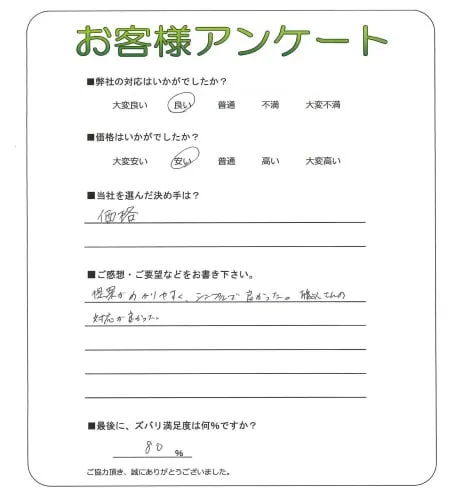 お客様アンケート
■弊社の対応はいかがでしたか?
大変良い 良い 普通 不満 大変不満
■価格はいかがでしたか?
大変安い 安い 普通 高い 大変高い
■当社を選んだ決め手は?
価格
■ご感想・ご要望などをお書き下さい。
がわかりやすく、シンプルで良かった。 さんの
対応が良かった。
■最後に、ズバリ満足度は何%ですか?
80 %
ご協力頂き、誠にありがとうございました。